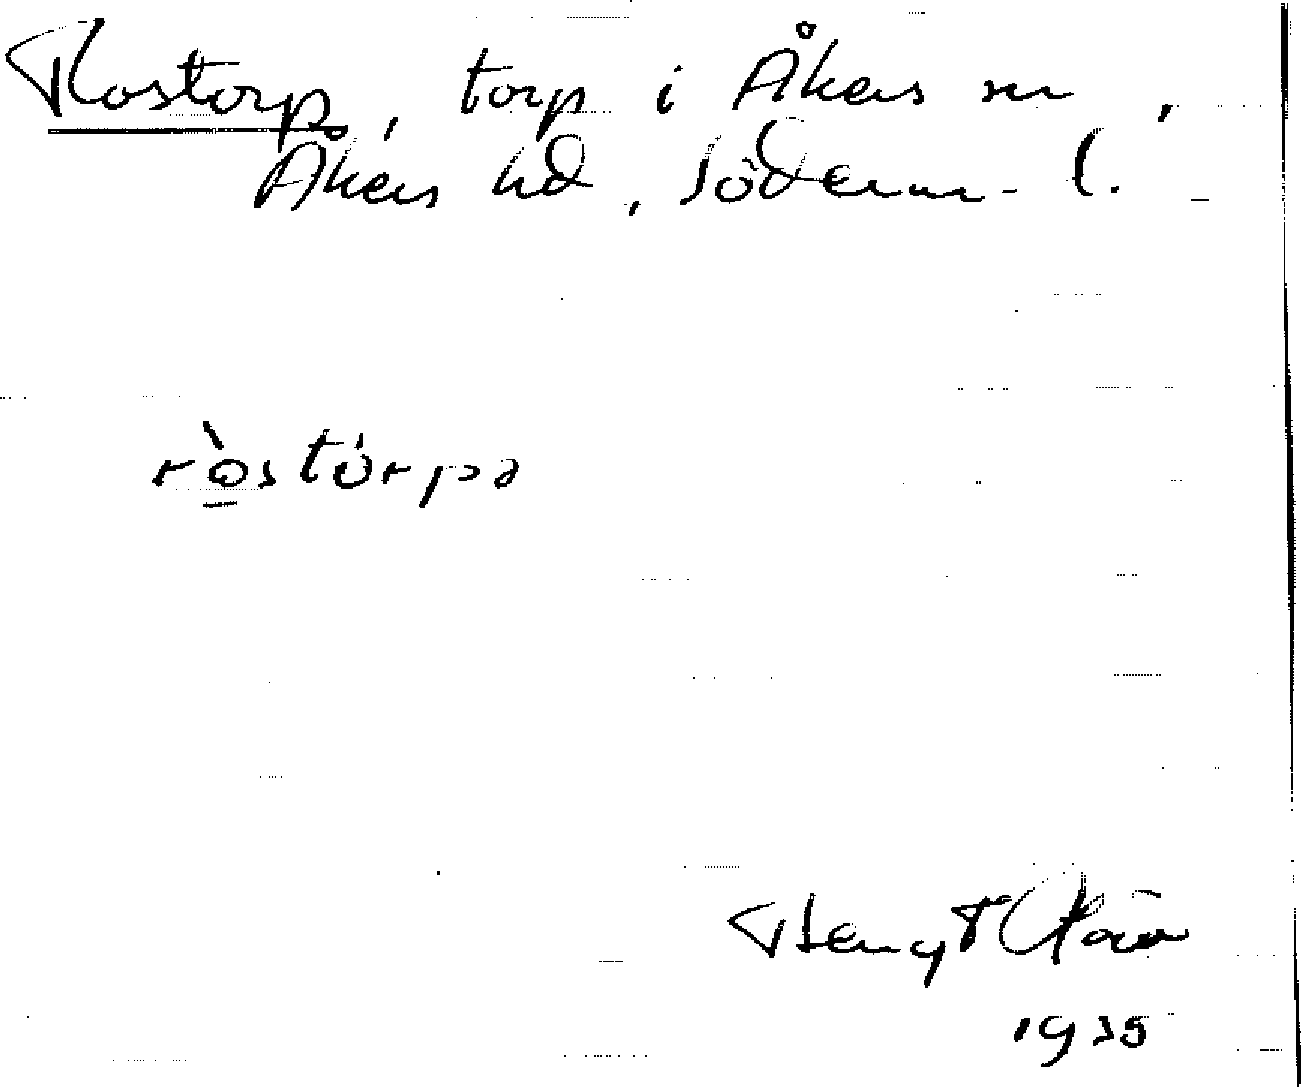 Rostorp, torp i Åkers sn,
Åkers hd, Söderm. l.
ròstórpə
Bengt
1935